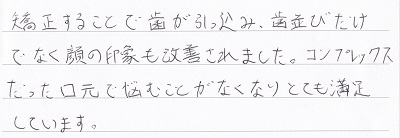 矯正することで歯が引っ込み、歯並びだけ
でなく顔の印象も改善されました。コンプレックス
だった口元で悩むことがなくなりとても満足
しています。